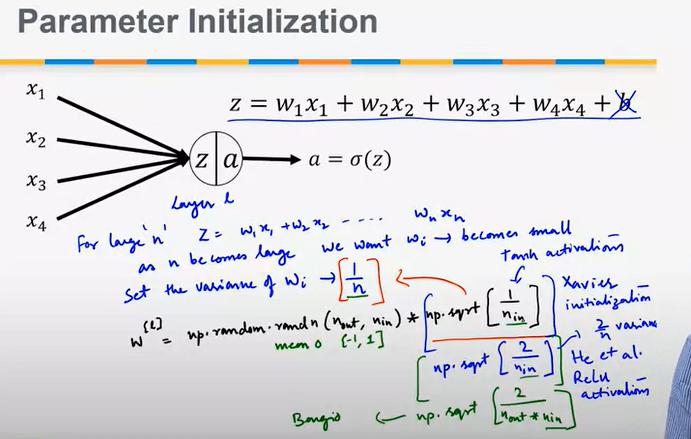 Parameter Initialization
x₁
x₂
x₃
x₄
z = w₁x₁ + w₂x₂ + w₃x₃ + w₄x₄ + b
z a
a = σ(z)
Layer l
For large 'n' Z = w₁x₁ + w₂x₂ ---- wₙxₙ
as n becomes large we want wᵢ → becomes small
Set the variance of wᵢ → [1/n]
Tanh activations
W^[l] = np.random.randn(n_out, n_in) * np.sqrt [1/n_in]
Xavier initialization
mean 0 [-1, 1]
np.sqrt [2/n_in]
→ 2/n variance
He et al.
Relu activations
Bengio ← np.sqrt [2/n_out * n_in]